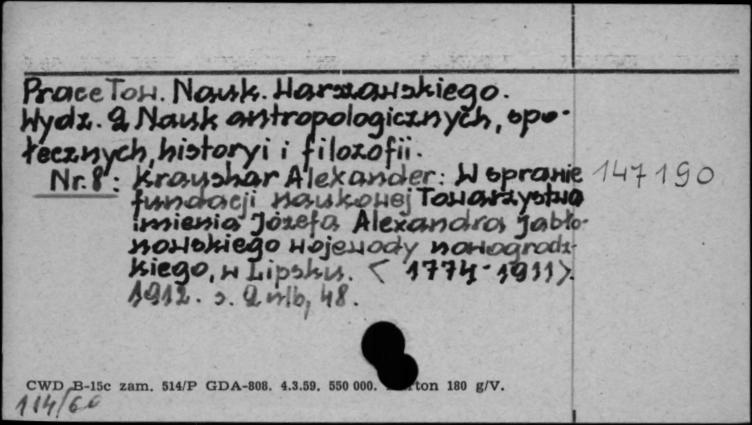 Prace Tow. Nauk. Warszawskiego.
Wydz. 2 Nauk antropologicznych, spo-
łecznych, historyi i filozofii.
Nr. 8: Kraushar Alexander: W sprawie 147190
fundacji naukowej Towarzystwa
imienia Józefa Alexandra Jabło-
nowskiego wojewody nowogrodz-
kiego, w Lipsku. < 1774 - 1911 >.
1912. s. 2 nlb, 48.
CWD B-15c zam. 514/P GDA-808. 4.3.59. 550 000. rton 180 g/V.
114/60